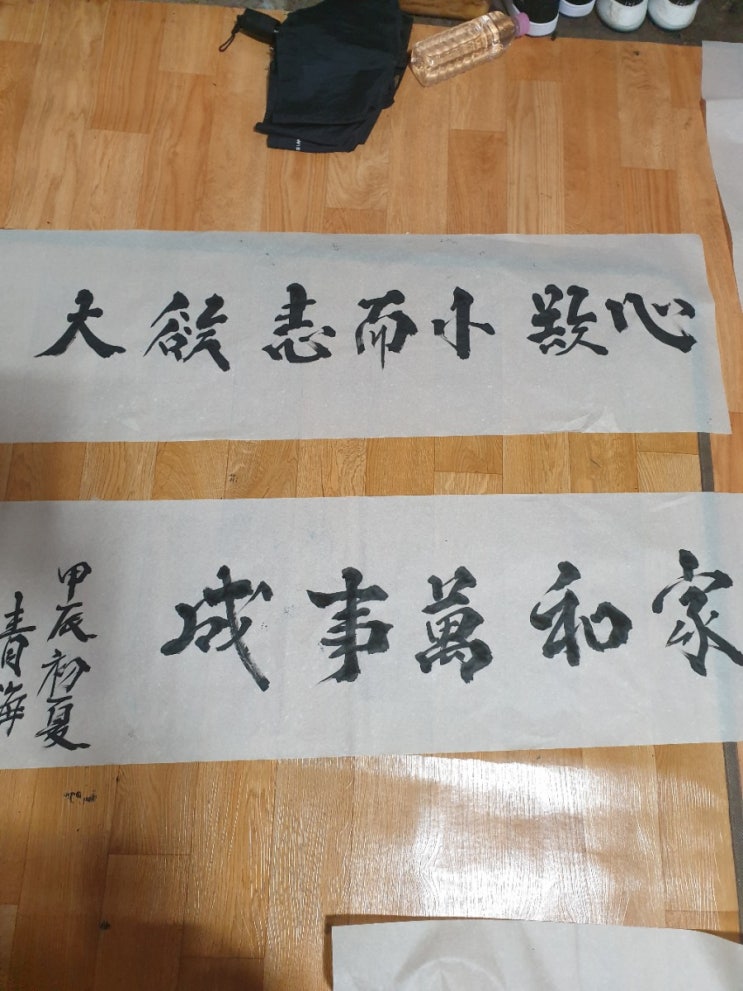 心欲小而志欲大
家和萬事成
甲辰初夏
青海